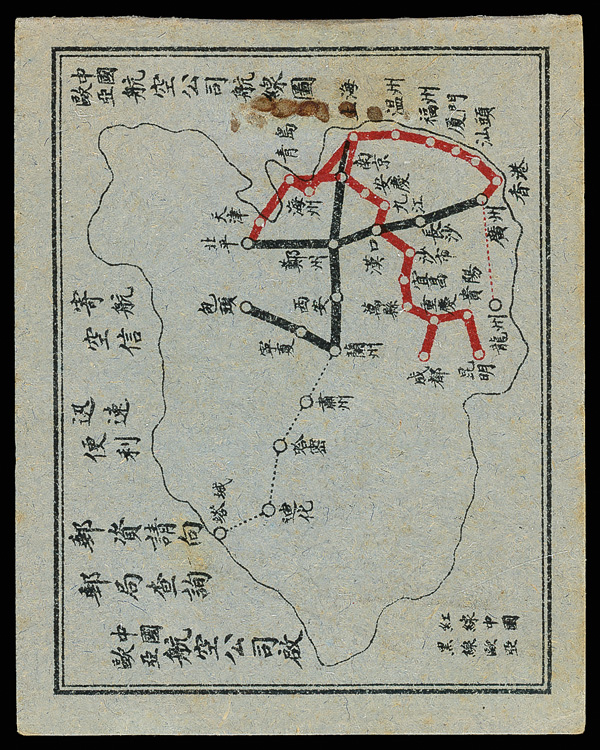 中國歐亞航空公司航線圖
寄航空信
迅速便利
郵資請向
郵局查詢
中國歐亞航空公司啟
上海
温州
福州
厦門
汕頭
香港
廣州
龍州
青島
海州
天津
北平
南京
安慶
九江
漢口
長沙
沙市
宜昌
萬縣
重慶
貴陽
成都
昆明
鄭州
西安
包頭
寧夏
蘭州
肅州
哈密
迪化
塔城
紅線中國
黑線歐亞